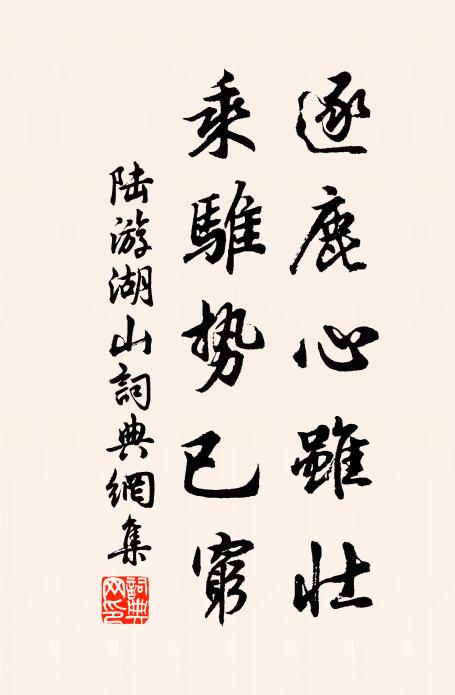 逐鹿心雖壯
乘騅勢已窮
陸游湖山詞典網集
詞典網印